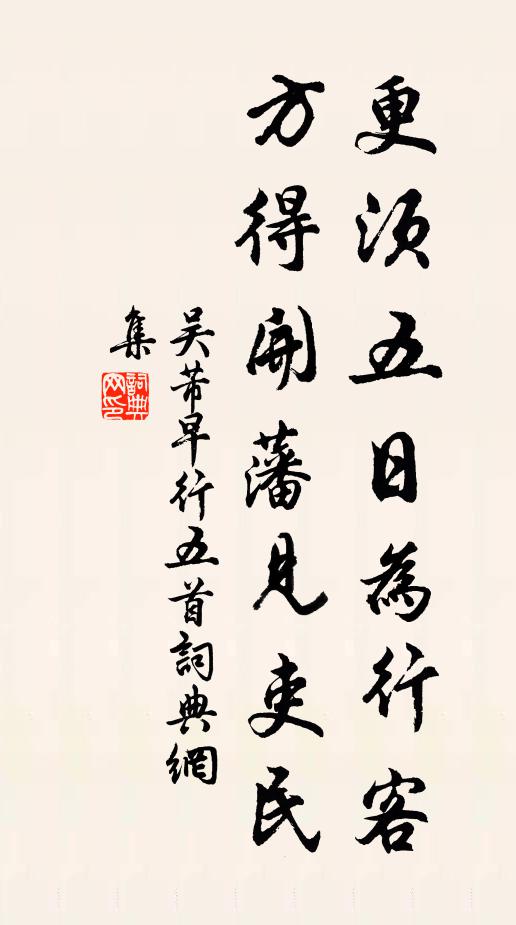 更須五日為行客
方得開藩見吏民
吳芾早行五首詞典網
集
詞典
网印